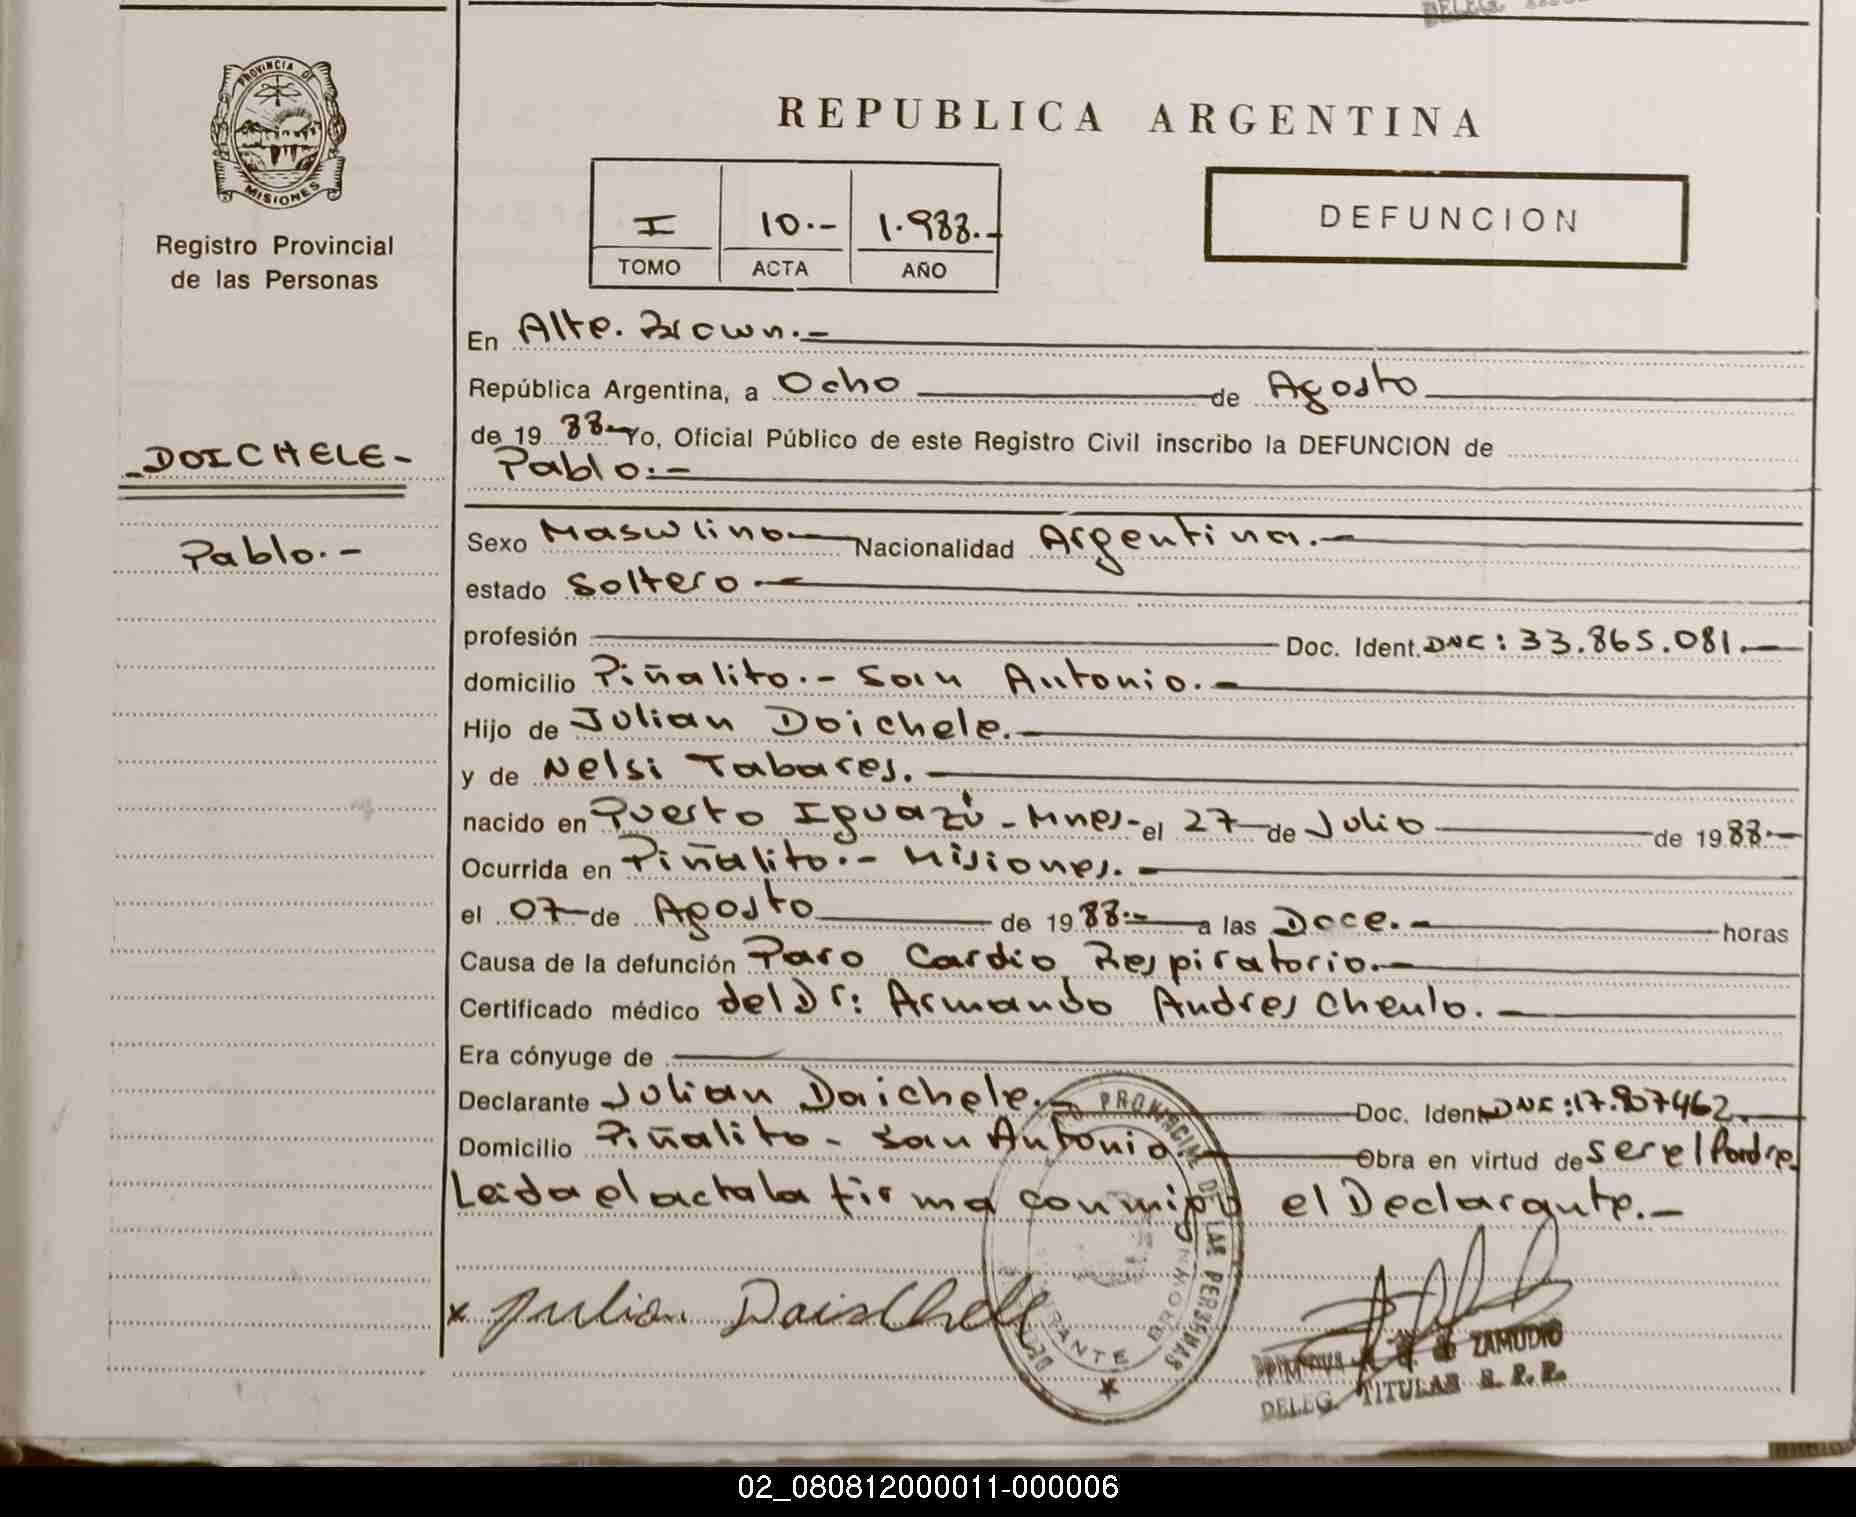 DELEG.
PROVINCIA DE
MISIONES
Registro Provincial
de las Personas
REPUBLICA ARGENTINA
I 10.- 1.988.-
TOMO ACTA AÑO
DEFUNCION
En Alte. Brown.-
República Argentina, a Ocho de Agosto
de 19 88.- Yo, Oficial Público de este Registro Civil inscribo la DEFUNCION de
-DOICHELE-
Pablo.-
Pablo.-
Sexo Masculino Nacionalidad Argentina.-
estado Soltero.-
profesión Doc. Ident. DNI: 33.865.081.-
domicilio Piñalito.- San Antonio.-
Hijo de Julian Doichele.-
y de Nelsi Tabares.-
nacido en Puerto Iguazú - Mnes- el 27 de Julio de 1988.-
Ocurrida en Piñalito.- Misiones.-
el 07 de Agosto de 1988.- a las Doce.- horas
Causa de la defunción Paro Cardio Respiratorio.-
Certificado médico del Dr: Armando Andres Chenlo.-
Era cónyuge de
Declarante Julian Doichele.- Doc. Ident. DNI: 17.807462.-
Domicilio Piñalito - San Antonio Obra en virtud de ser el Padre
Leida el acta la firma conmigo el Declarante.-
x Julian Doischele
PROVINCIAL DE LAS PERSONAS
BROWN
ZAMUDIO
DELEG. TITULAR R. P. P.
02_080812000011-000006